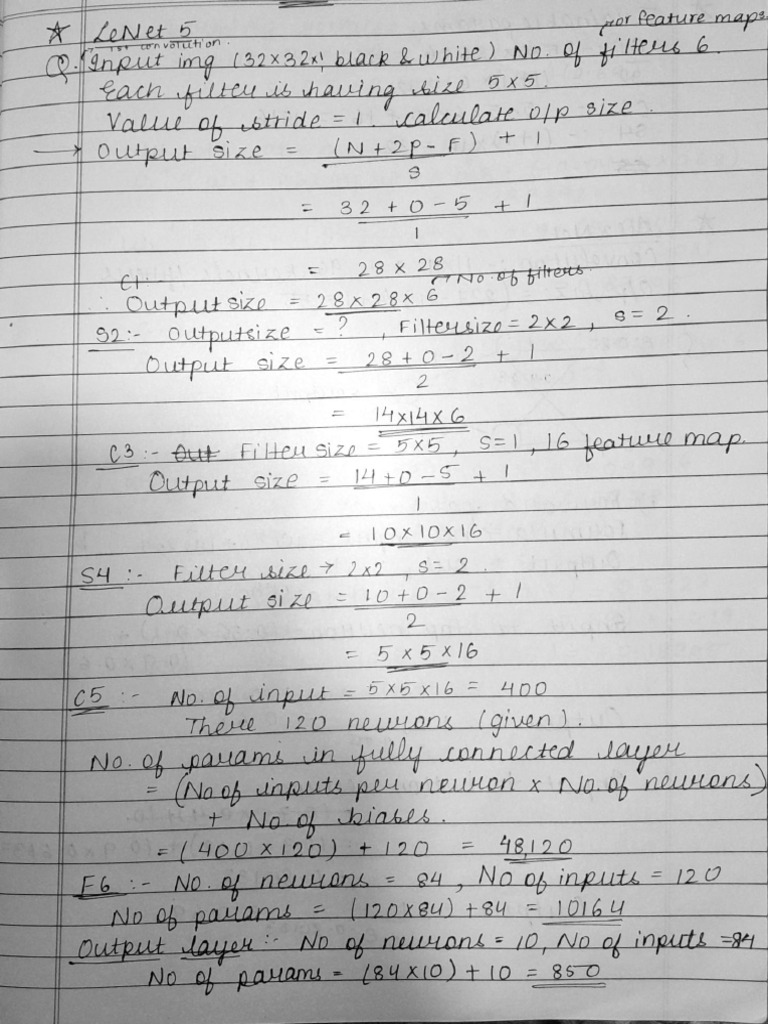 ☆ LeNet 5 → or feature maps
1st convolution.
Q. Input img (32×32×1 black & white) No. of filters 6.
Each filter is having size 5×5.
Value of stride = 1. calculate o/p size.
→ Output size = (N + 2P - F) + 1
S
= 32 + 0 - 5 + 1
1
= 28 × 28
C1:- → No. of filters.
∴ Output size = 28 × 28 × 6
S2:- Outputsize = ? , Filtersize = 2×2 , S = 2.
Output size = 28 + 0 - 2 + 1
2
= 14×14×6
C3:- Out Filter size = 5×5, S=1, 16 feature map.
Output size = 14+0-5 + 1
1
= 10×10×16
S4:- Filter size → 2×2 , S = 2.
Output size = 10 + 0 - 2 + 1
2
= 5 × 5 × 16
C5:- No. of input = 5×5×16 = 400
There 120 neurons (given).
No. of params in fully connected layer
= (No of inputs per neuron × No. of neurons)
+ No of biases.
= (400 × 120) + 120 = 48,120
F6:- No. of neurons = 84, No of inputs = 120
No of params = (120×84) + 84 = 10164
Output layer:- No of neurons = 10, No of inputs = 84
No of params = (84×10) + 10 = 850